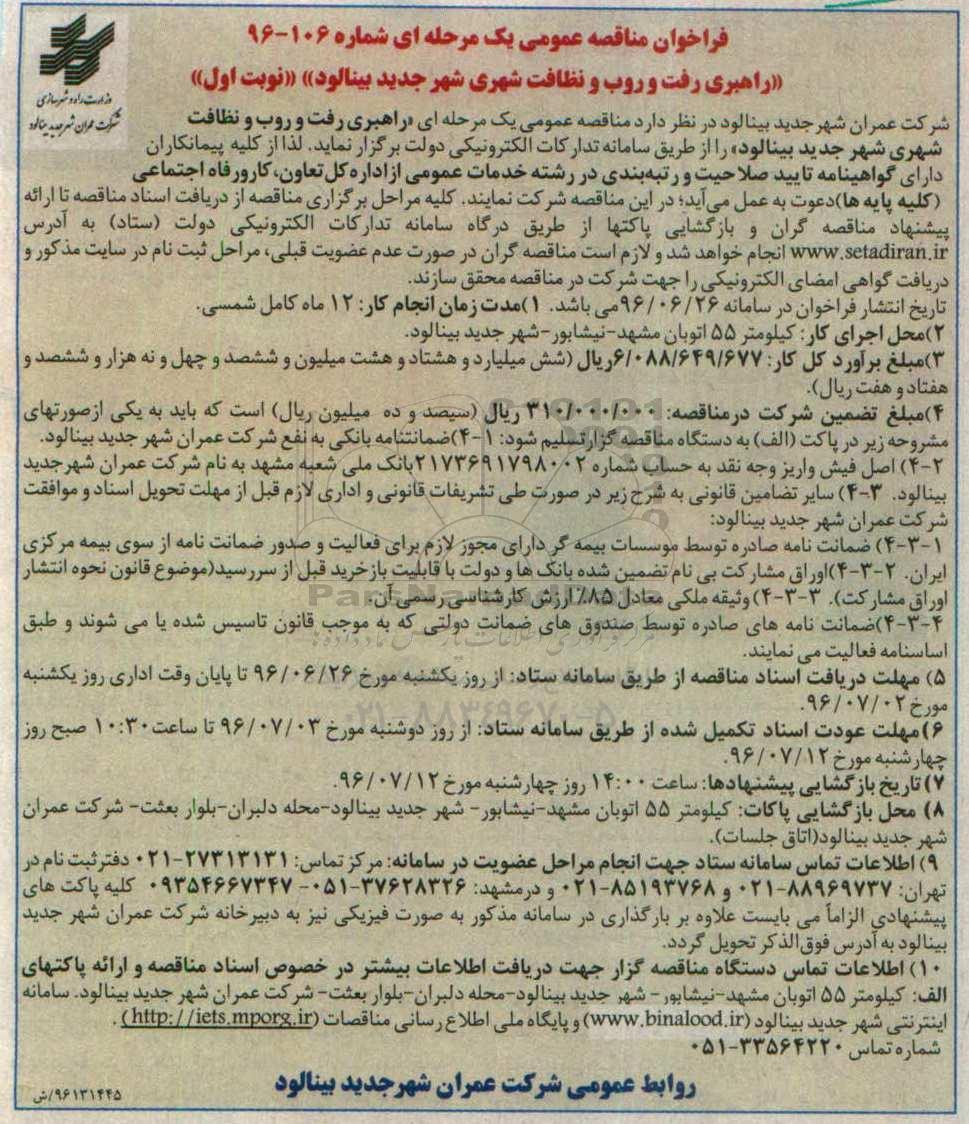 فراخوان مناقصه عمومی یک مرحله ای شماره ۱۰۶-۹۶
«راهبری رفت و روب و نظافت شهری شهر جدید بینالود» «نوبت اول»
وزارت راه و شهرسازی
شرکت عمران شهر جدید بینالود
شرکت عمران شهرجدید بینالود در نظر دارد مناقصه عمومی یک مرحله ای «راهبری رفت و روب و نظافت
شهری شهر جدید بینالود» را از طریق سامانه تدارکات الکترونیکی دولت برگزار نماید. لذا از کلیه پیمانکاران
دارای گواهینامه تایید صلاحیت و رتبه‌بندی در رشته خدمات عمومی از اداره کل تعاون، کار و رفاه اجتماعی
(کلیه پایه ها) دعوت به عمل می‌آید؛ در این مناقصه شرکت نمایند. کلیه مراحل برگزاری مناقصه از دریافت اسناد مناقصه تا ارائه
پیشنهاد مناقصه گران و بازگشایی پاکتها از طریق درگاه سامانه تدارکات الکترونیکی دولت (ستاد) به آدرس
www.setadiran.ir انجام خواهد شد و لازم است مناقصه گران در صورت عدم عضویت قبلی، مراحل ثبت نام در سایت مذکور و
دریافت گواهی امضای الکترونیکی را جهت شرکت در مناقصه محقق سازند.
تاریخ انتشار فراخوان در سامانه ۹۶/۰۶/۲۶ می باشد. ۱)مدت زمان انجام کار: ۱۲ ماه کامل شمسی.
۲)محل اجرای کار: کیلومتر ۵۵ اتوبان مشهد-نیشابور-شهر جدید بینالود.
۳)مبلغ برآورد کل کار: ۶/۰۸۸/۶۴۹/۶۷۷ریال (شش میلیارد و هشتاد و هشت میلیون و ششصد و چهل و نه هزار و ششصد و
هفتاد و هفت ریال).
۴)مبلغ تضمین شرکت درمناقصه: ۳۱۰/۰۰۰/۰۰۰ ریال (سیصد و ده میلیون ریال) است که باید به یکی ازصورتهای
مشروحه زیر در پاکت (الف) به دستگاه مناقصه گزارتسلیم شود: ۴-۱)ضمانتنامه بانکی به نفع شرکت عمران شهر جدید بینالود.
۴-۲) اصل فیش واریز وجه نقد به حساب شماره ۲۱۷۳۶۹۱۷۹۸۰۰۲بانک ملی شعبه مشهد به نام شرکت عمران شهرجدید
بینالود. ۴-۳) سایر تضامین قانونی به شرح زیر در صورت طی تشریفات قانونی و اداری لازم قبل از مهلت تحویل اسناد و موافقت
شرکت عمران شهر جدید بینالود:
۴-۳-۱) ضمانت نامه صادره توسط موسسات بیمه گر دارای مجوز لازم برای فعالیت و صدور ضمانت نامه از سوی بیمه مرکزی
ایران. ۴-۳-۲)اوراق مشارکت بی نام تضمین شده بانک ها و دولت با قابلیت بازخرید قبل از سررسید(موضوع قانون نحوه انتشار
اوراق مشارکت). ۴-۳-۳) وثیقه ملکی معادل ۸۵٪ ارزش کارشناسی رسمی آن.
۴-۳-۴)ضمانت نامه های صادره توسط صندوق های ضمانت دولتی که به موجب قانون تاسیس شده یا می شوند و طبق
اساسنامه فعالیت می نمایند.
۵) مهلت دریافت اسناد مناقصه از طریق سامانه ستاد: از روز یکشنبه مورخ ۹۶/۰۶/۲۶ تا پایان وقت اداری روز یکشنبه
مورخ ۹۶/۰۷/۰۲.
۶)مهلت عودت اسناد تکمیل شده از طریق سامانه ستاد: از روز دوشنبه مورخ ۹۶/۰۷/۰۳ تا ساعت۱۰:۳۰ صبح روز
چهارشنبه مورخ ۹۶/۰۷/۱۲.
۷)تاریخ بازگشایی پیشنهادها: ساعت ۱۴:۰۰ روز چهارشنبه مورخ ۹۶/۰۷/۱۲.
۸) محل بازگشایی پاکات: کیلومتر ۵۵ اتوبان مشهد-نیشابور- شهر جدید بینالود-محله دلبران-بلوار بعثت- شرکت عمران
شهر جدید بینالود(اتاق جلسات).
۹) اطلاعات تماس سامانه ستاد جهت انجام مراحل عضویت در سامانه: مرکز تماس: ۲۷۳۱۳۱۳۱-۰۲۱ دفتر ثبت نام در
تهران: ۸۸۹۶۹۷۳۷-۰۲۱ و ۸۵۱۹۳۷۶۸-۰۲۱ و درمشهد: ۳۷۶۲۸۳۲۶-۰۵۱- ۰۹۳۵۴۶۶۷۳۴۷ کلیه پاکت های
پیشنهادی الزاماً می بایست علاوه بر بارگذاری در سامانه مذکور به صورت فیزیکی نیز به دبیرخانه شرکت عمران شهر جدید
بینالود به آدرس فوق‌الذکر تحویل گردد.
۱۰) اطلاعات تماس دستگاه مناقصه گزار جهت دریافت اطلاعات بیشتر در خصوص اسناد مناقصه و ارائه پاکتهای
الف: کیلومتر ۵۵ اتوبان مشهد-نیشابور- شهر جدید بینالود-محله دلبران-بلوار بعثت- شرکت عمران شهر جدید بینالود. سامانه
اینترنتی شهر جدید بینالود (www.binalood.ir) و پایگاه ملی اطلاع رسانی مناقصات (http://iets.mporg.ir).
شماره تماس ۳۳۵۶۴۲۲۰-۰۵۱
روابط عمومی شرکت عمران شهرجدید بینالود
۹۶۱۳۱۴۴۵/ش